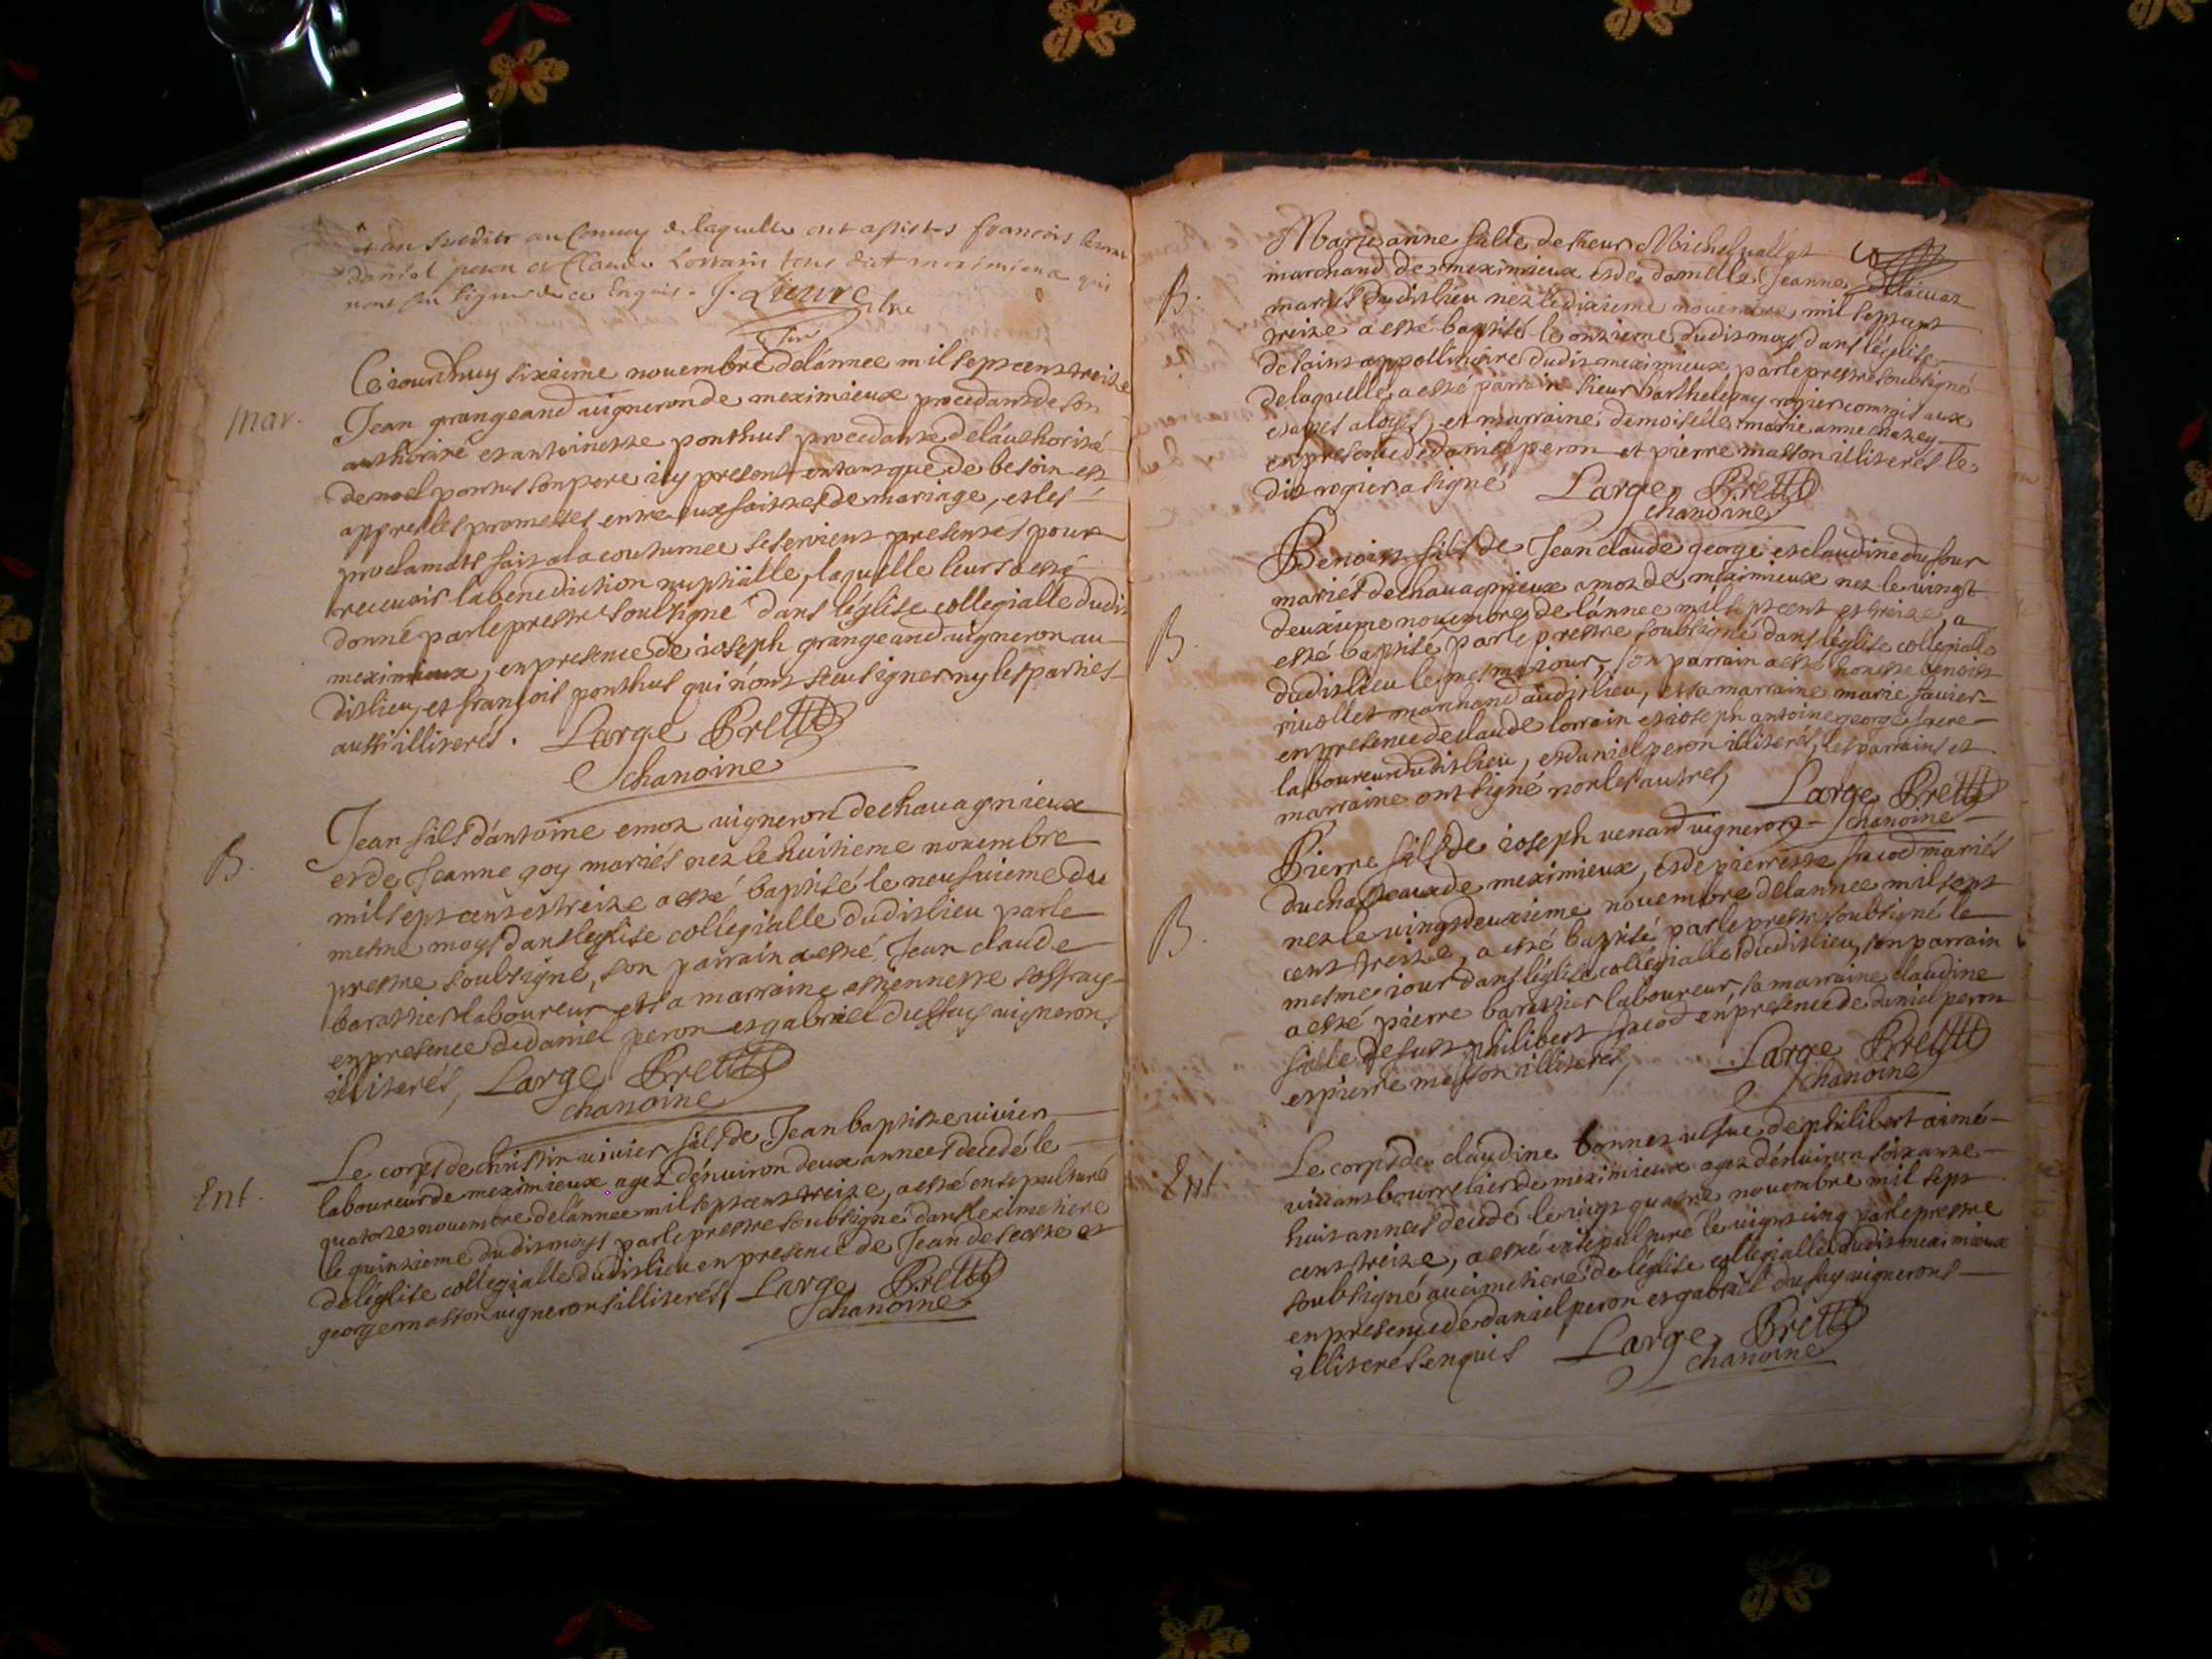 an susdite au Convoy de laquelle ont assistes francois
daniel peron et Claude Lorrain tous dud meximieux qui
nont sceu signer de ce Enquis. J. Lieuvre
mar.
Ce iourdhuy sixieme novembre de lánnee mil sept cens treize
Jean grangeand vigneron de meximieux procedant de son
authorité et antoinette ponthus procedante de láuthorité
de noel pontus son pere icy present entant que de besoin est
appres les promesses entre eux faittes de mariage, et les
proclamats fait a la coutumee se servient presentes pour
recevoir la benediction nuptialle, laquelle leurs a esté
donné par le prestre soubsigné dans léglise collegialle dudit
meximieux, en presence de ioseph grangeand vigneron au
dit lieu, et françois ponthus qui n'ont sceu signer ny les parties
aussi illiterés. Large Bretté
chanoine
B.
Jean fils d'antoine emoz vigneron de chavagnieux
et de Jeanne goy mariés nez le huitieme novembre
mil sept cens et treize a esté baptisé le neufvieme du
mesme moys dans léglise collegialle dudit lieu par le
prestre soubsigné, son parrain a esté Jean claude
barathier laboureur et sa marraine estiennette soffray
en presence de daniel peron et gabriel dussay vignerons
illiterés, Large Bretté
chanoine
Ent.
Le corps de christin vivier fils de Jean baptiste vivier
laboureur de meximieux agez dénviron deux annees decedé le
quatorze novembre de lánnee mil sept cens treize, a esté ensepulturé
le quinzieme dudit moys par le prestre soubsigné dans le cimetiere
de léglise collegialle dudit lieu en presence de Jean de scotte et
george masson vignerons illiterés, Large Bretté
chanoine
Marie anne fille de sieur Michel vallat
B.
marchand de meximieux et de damelle Jeanne
mariés dudit lieu nez le dixieme novembre mil sept cent
treize a esté baptisé le onzieme dudit moys dans léglise
de saint appollinaire dudit meximieux par le prestre soubsigné
de laquelle a esté parrain sieur barthelemy rogier commis aux
et marraine demoiselle marie anne chazey
en presence de daniel peron et pierre masson illiterés le
dit rogier a signé Large Bretté
chanoine
Benoist fils de Jean claude george et claudine dufour
mariés de chavagnieux amoz de meximieux nez le vingt
B.
deuxieme novembre de lánnee mil sept cent et treize, a
esté baptisé par le prestre soubsigné dans léglise collegialle
dudit lieu le mesme iour, son parrain a esté honeste benoist
rivollet marchand audit lieu, et sa marraine marie favier
en presence de claude lorrain et ioseph antoine george frere
laboureur dudit lieu, et daniel peron illiterés, les parrains et
marraine ont signé non les autres, Large Bretté
chanoine
Pierre fils de ioseph venard vigneron
du chasteaux de meximieux, et de pierrette jacod mariés
B.
nez le vingt deuxieme novembre de lannee mil sept
cent treize, a esté baptisé par le prestre soubsigné le
mesme iour dans léglise collegialle dudit lieu, son parrain
a esté pierre barattier laboureur sa marraine claudine
fille de feust philibert jacod en presence de daniel peron
et pierre masson illiterés, Large Bretté
chanoine
Ent.
Le corps de claudine bonnez vefue de philibert aimé
vivant bourrelier de meximieux agez dénviron soixante
huit annees decedé le vingt quatre novembre mil sept
cent treize, a esté ensepulturé le vignt cinq par le prestre
soubsigné au cimetiere de léglise collegialle dudit meximieux
en presence de daniel peron et gabriel dufay vignerons
illiterés enquis Large Bretté
chanoine